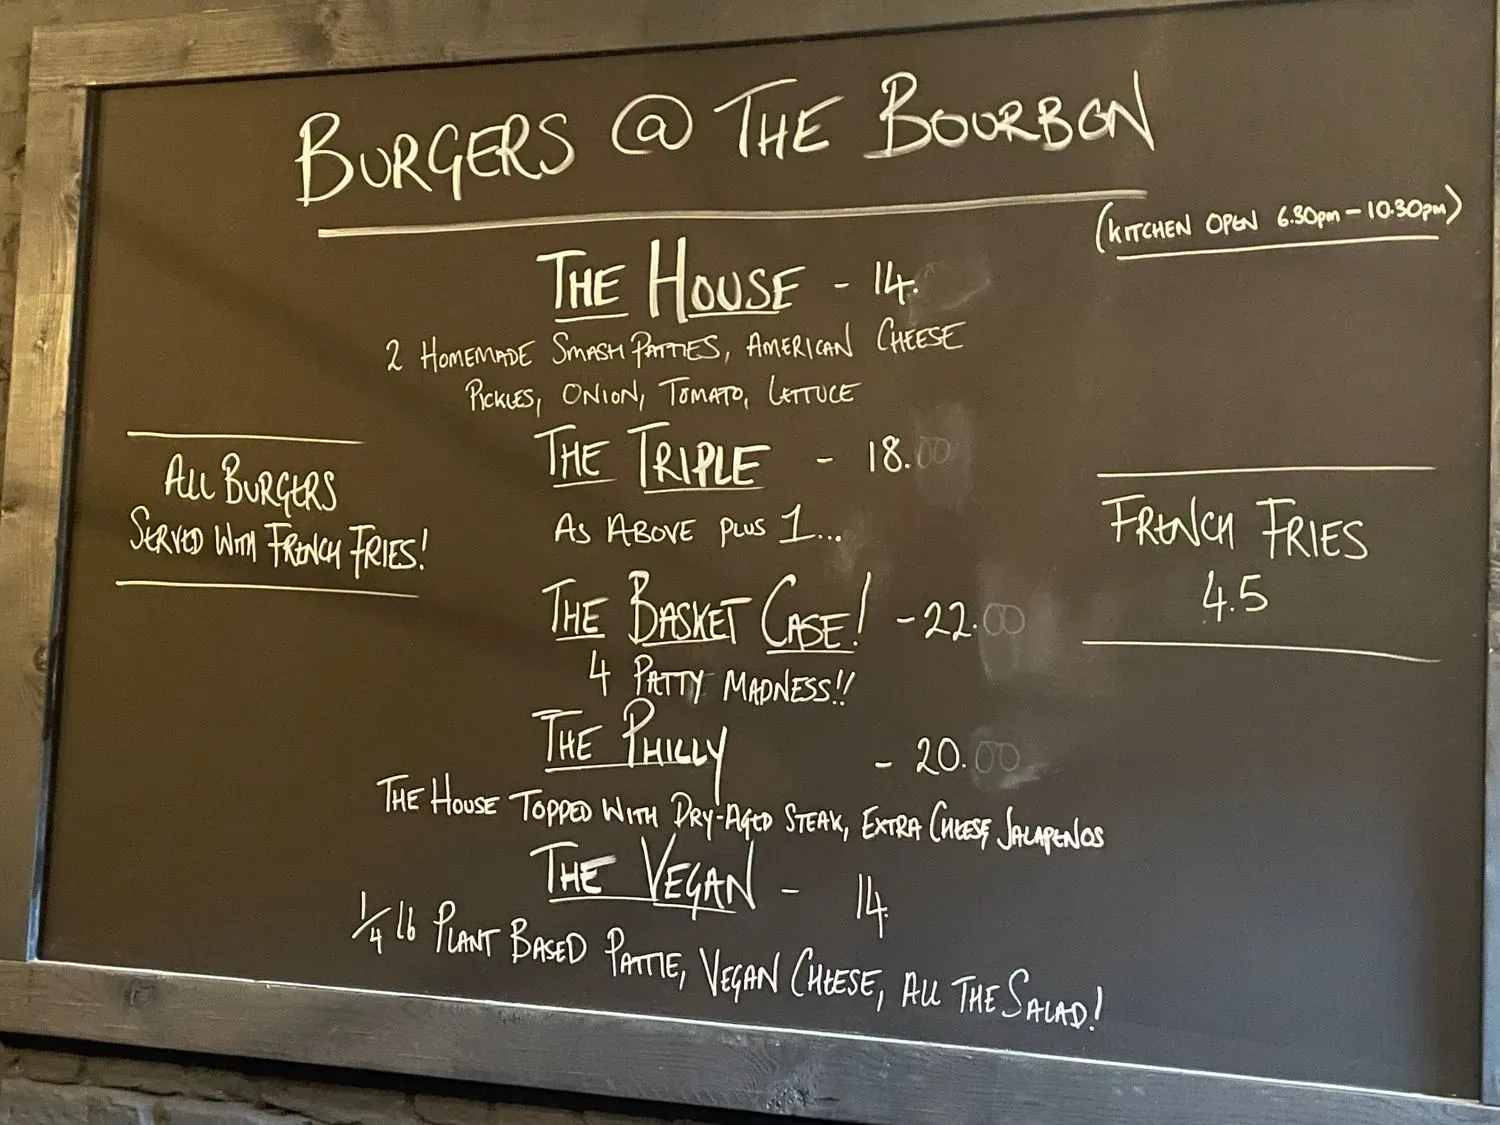 BURGERS @ THE BOURBON
(KITCHEN OPEN 6.30pm – 10.30pm)
THE HOUSE - 14.
2 HOMEMADE SMASH PATTIES, AMERICAN CHEESE
PICKLES, ONION, TOMATO, LETTUCE
THE TRIPLE - 18.00
AS ABOVE PLUS 1...
THE BASKET CASE! - 22.00
4 PATTY MADNESS!!
THE PHILLY - 20.00
THE HOUSE TOPPED WITH DRY-AGED STEAK, EXTRA CHEESE, JALAPENOS
THE VEGAN - 14
1/4 lb PLANT BASED PATTIE, VEGAN CHEESE, ALL THE SALAD!
ALL BURGERS
SERVED WITH FRENCH FRIES!
FRENCH FRIES
4.5